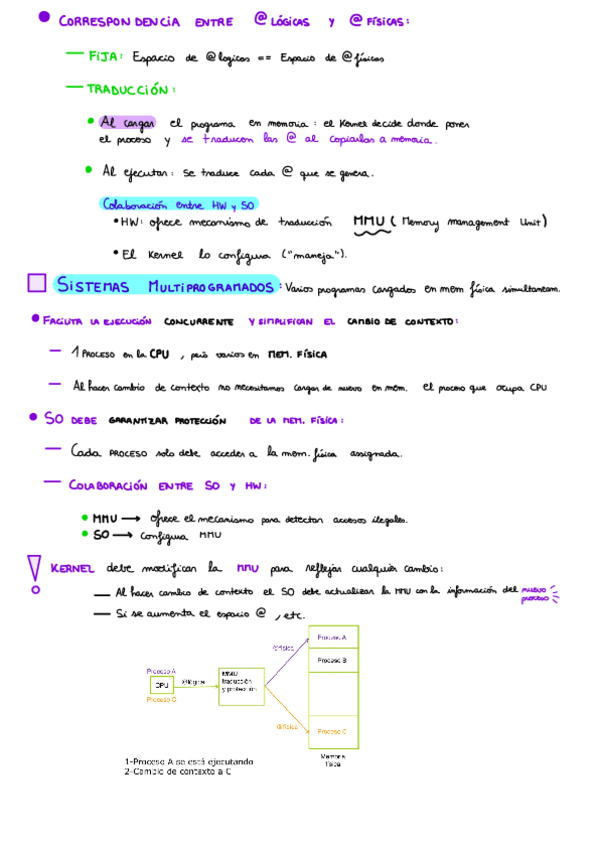 CORRESPONDENCIA ENTRE @ LÓGICAS Y @ FÍSICAS:
— FIJA: Espacio de @logicas == Espacio de @físicas
— TRADUCCIÓN:
Al cargar el programa en memoria: el Kernel decide donde poner
el proceso y se traducen las @ al copiarlas a memoria.
Al ejecutar: Se traduce cada @ que se genera.
Colaboración entre HW y SO
• HW: ofrece mecanismo de traducción MMU (Memory management Unit)
• El Kernel lo configura ("maneja").
SISTEMAS MULTIPROGRAMADOS: Varios programas cargados en mem física simultaneam.
FACILITA LA EJECUCIÓN CONCURRENTE Y SIMPLIFICAN EL CAMBIO DE CONTEXTO:
— 1 PROCESO en la CPU, pero varios en MEM. FÍSICA
— Al hacer cambio de contexto no necesitamos cargar de nuevo en mem. el proceso que ocupa CPU
SO DEBE GARANTIZAR PROTECCIÓN DE LA MEM. FÍSICA:
— Cada PROCESO solo debe acceder a la mem. física assignada.
— COLABORACIÓN ENTRE SO Y HW:
MMU → ofrece el mecanismo para detectar accesos ilegales.
SO → configura MMU
! KERNEL debe modificar la MMU para reflejar cualquier cambio:
— Al hacer cambio de contexto el SO debe actualizar la MMU con la información del nuevo
proceso
— Si se aumenta el espacio @, etc.
Proceso A
CPU
Proceso C
@lógica
MMU
traducción
y protección
@física
@física
Proceso A
Proceso B
Proceso C
Memoria
física
1-Proceso A se está ejecutando
2-Cambio de contexto a C